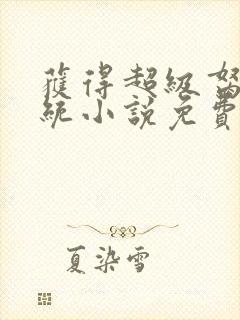 獲得超級
統小說免費
夏染雪